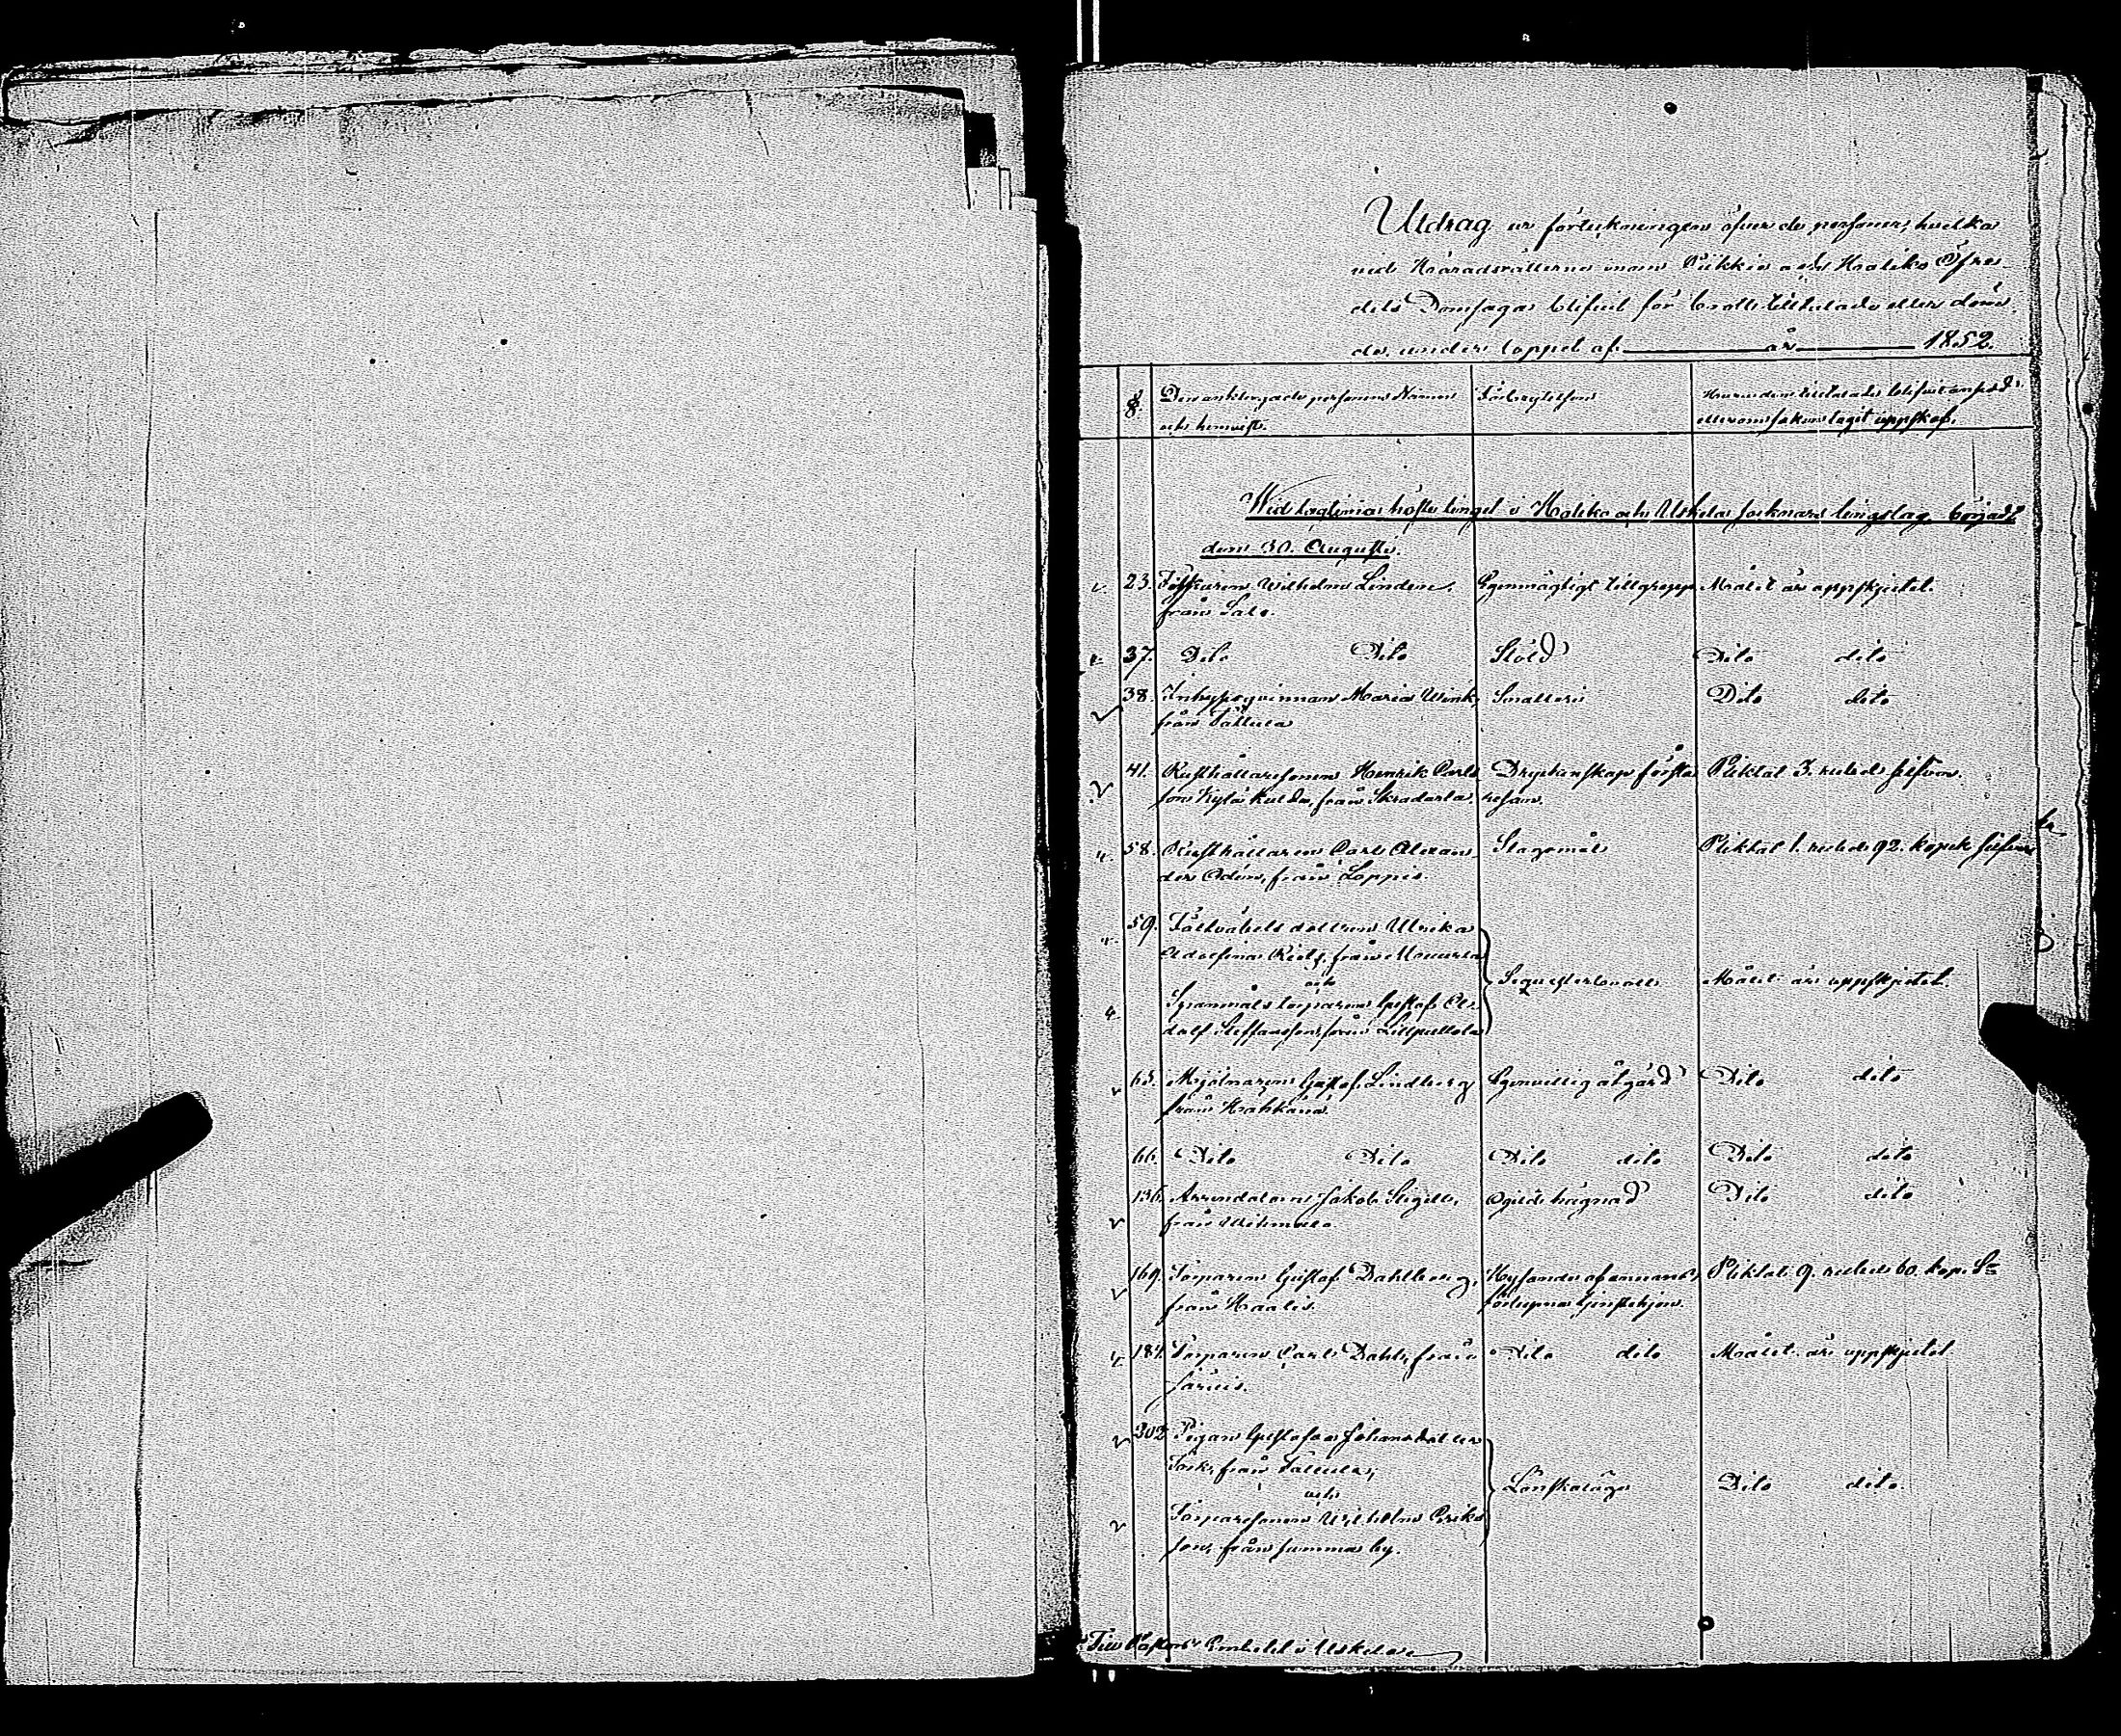 Utdrag ur förteckningen öfver de personer, hvilka
vid Häradsrätterne inom Pikkis och Haliko Öfre
dels Domsaga blifvit för brott tilltalade eller döm
de under loppet af år 1852.
§§.
Den anklagade personens Namn
och hemvist.
Förbrytelsen
Huru den tilltalade blifvit anseedd
eller om saken tagit uppskof.
Wid lagtima hösteting et i Haliko och Uskela socknars tingslag, börjadt
den 30. Augusti.
23. Fiskaren Wilhelm Linden, Egenmägtigt tillgrepp Målet är uppskjutet.
från Salo.
37. Dito Dito Stöld Dito dito
38. Inhysesqvinnan Maria Wink, Snatteri Dito dito
från Tattula
41. Rusthållaresonen Henrik Carls Dryckenskap första Pliktat 3. rubel silfver.
son Kylä Kulda, från Skradarla. resan.
58. Rusthållaren Carl Alexan Slagsmål Pliktat 1. rubel 92. kopek silfver
der Odén, från Loppis.
59. Fältväbels dottren Ulrika
Adolfina, från
och
Spanmåls torparen Gustaf A
dolf Steffansson, från
Sequesterbrott Målet är uppskjutet.
65. Mjölnaren Gustaf Lindberg Egenvillig åtgärd Dito dito
från
66. Dito Dito Dito dito Dito dito
136. Arrendatorn Jakob Stigell, Ogild hägnad Dito dito
från
169. Torparen Gustaf Dahlberg, Hysande af annans Pliktat 9. rubel 60. kop. Sr
från Haalis. förlupna tjenstehjon.
184. Torparen Carl Dahl, från Dito dito Målet är uppskjutet
Järvis.
202 Pigan Gustafva Johansdotter
Tork, från Tattula,
och
Torparesonen Wilhelm Eriks
son, från samma by.
Lönskaläge Dito dito.
Till Pastors Embetet i Uskela